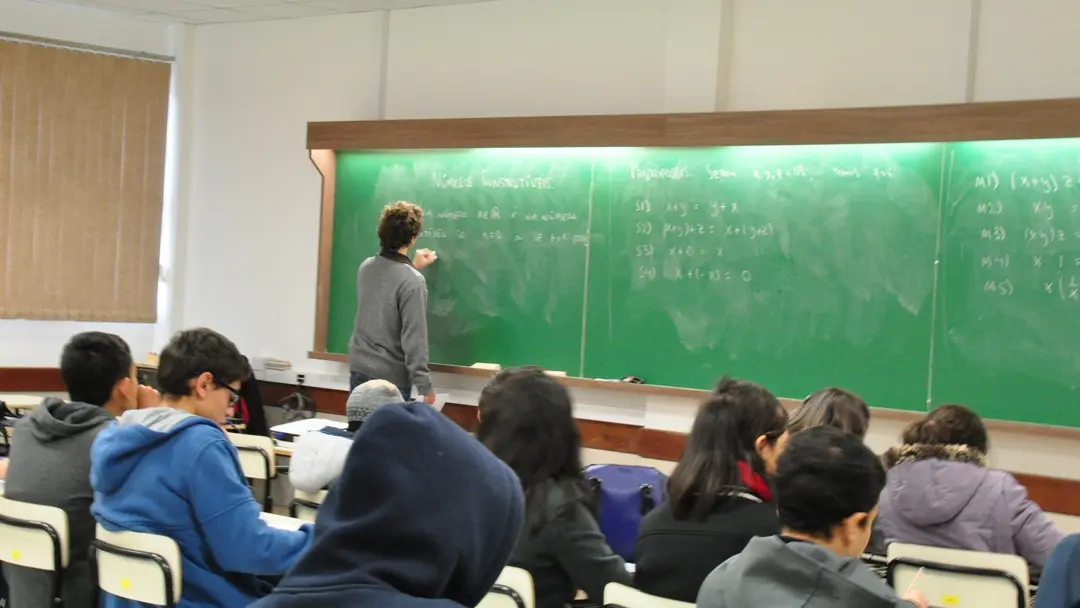 NÚMEROS CONSTRUTÍVEIS
NÚMERO X∈ℝ É UM NÚMERO
PROPRIEDADES: SEJAM X,Y,Z ∈ℝ, TAIS QUE
S1) X+Y = Y+X
S2) (X+Y)+Z = X+(Y+Z)
S3) X+0 = X
S4) X+(-X) = 0
M1) (X+Y)Z =
M2) XY =
M3) (XY)Z =
M4) X · 1 =
M5) X(1/X